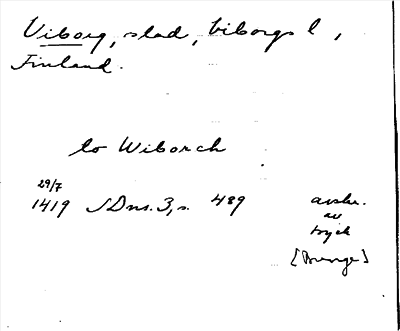 Viborg, stad, Viborgs l,
Finland.
to Wiborch
29/7
1419 SDns. 3, s. 489 avskr.
av
tryck
[Bunge]